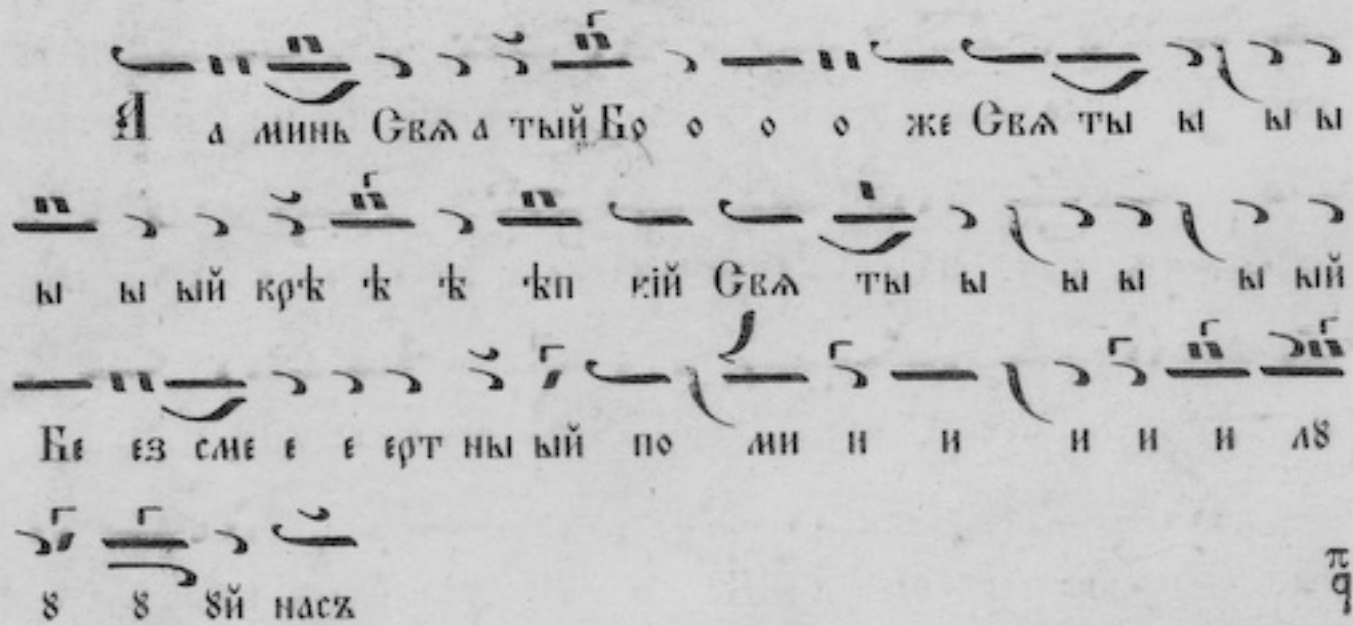 Я а минь Свѧ а тый Бо о о о же Свѧ ты ы ы ы
ы ы ый крѣ ѣ ѣ ѣп кій Свѧ ты ы ы ы ы ый
Бе ез сме е е ерт ны ый по ми и и и и и лꙋ
ꙋ ꙋ ꙋй насъ
π
q